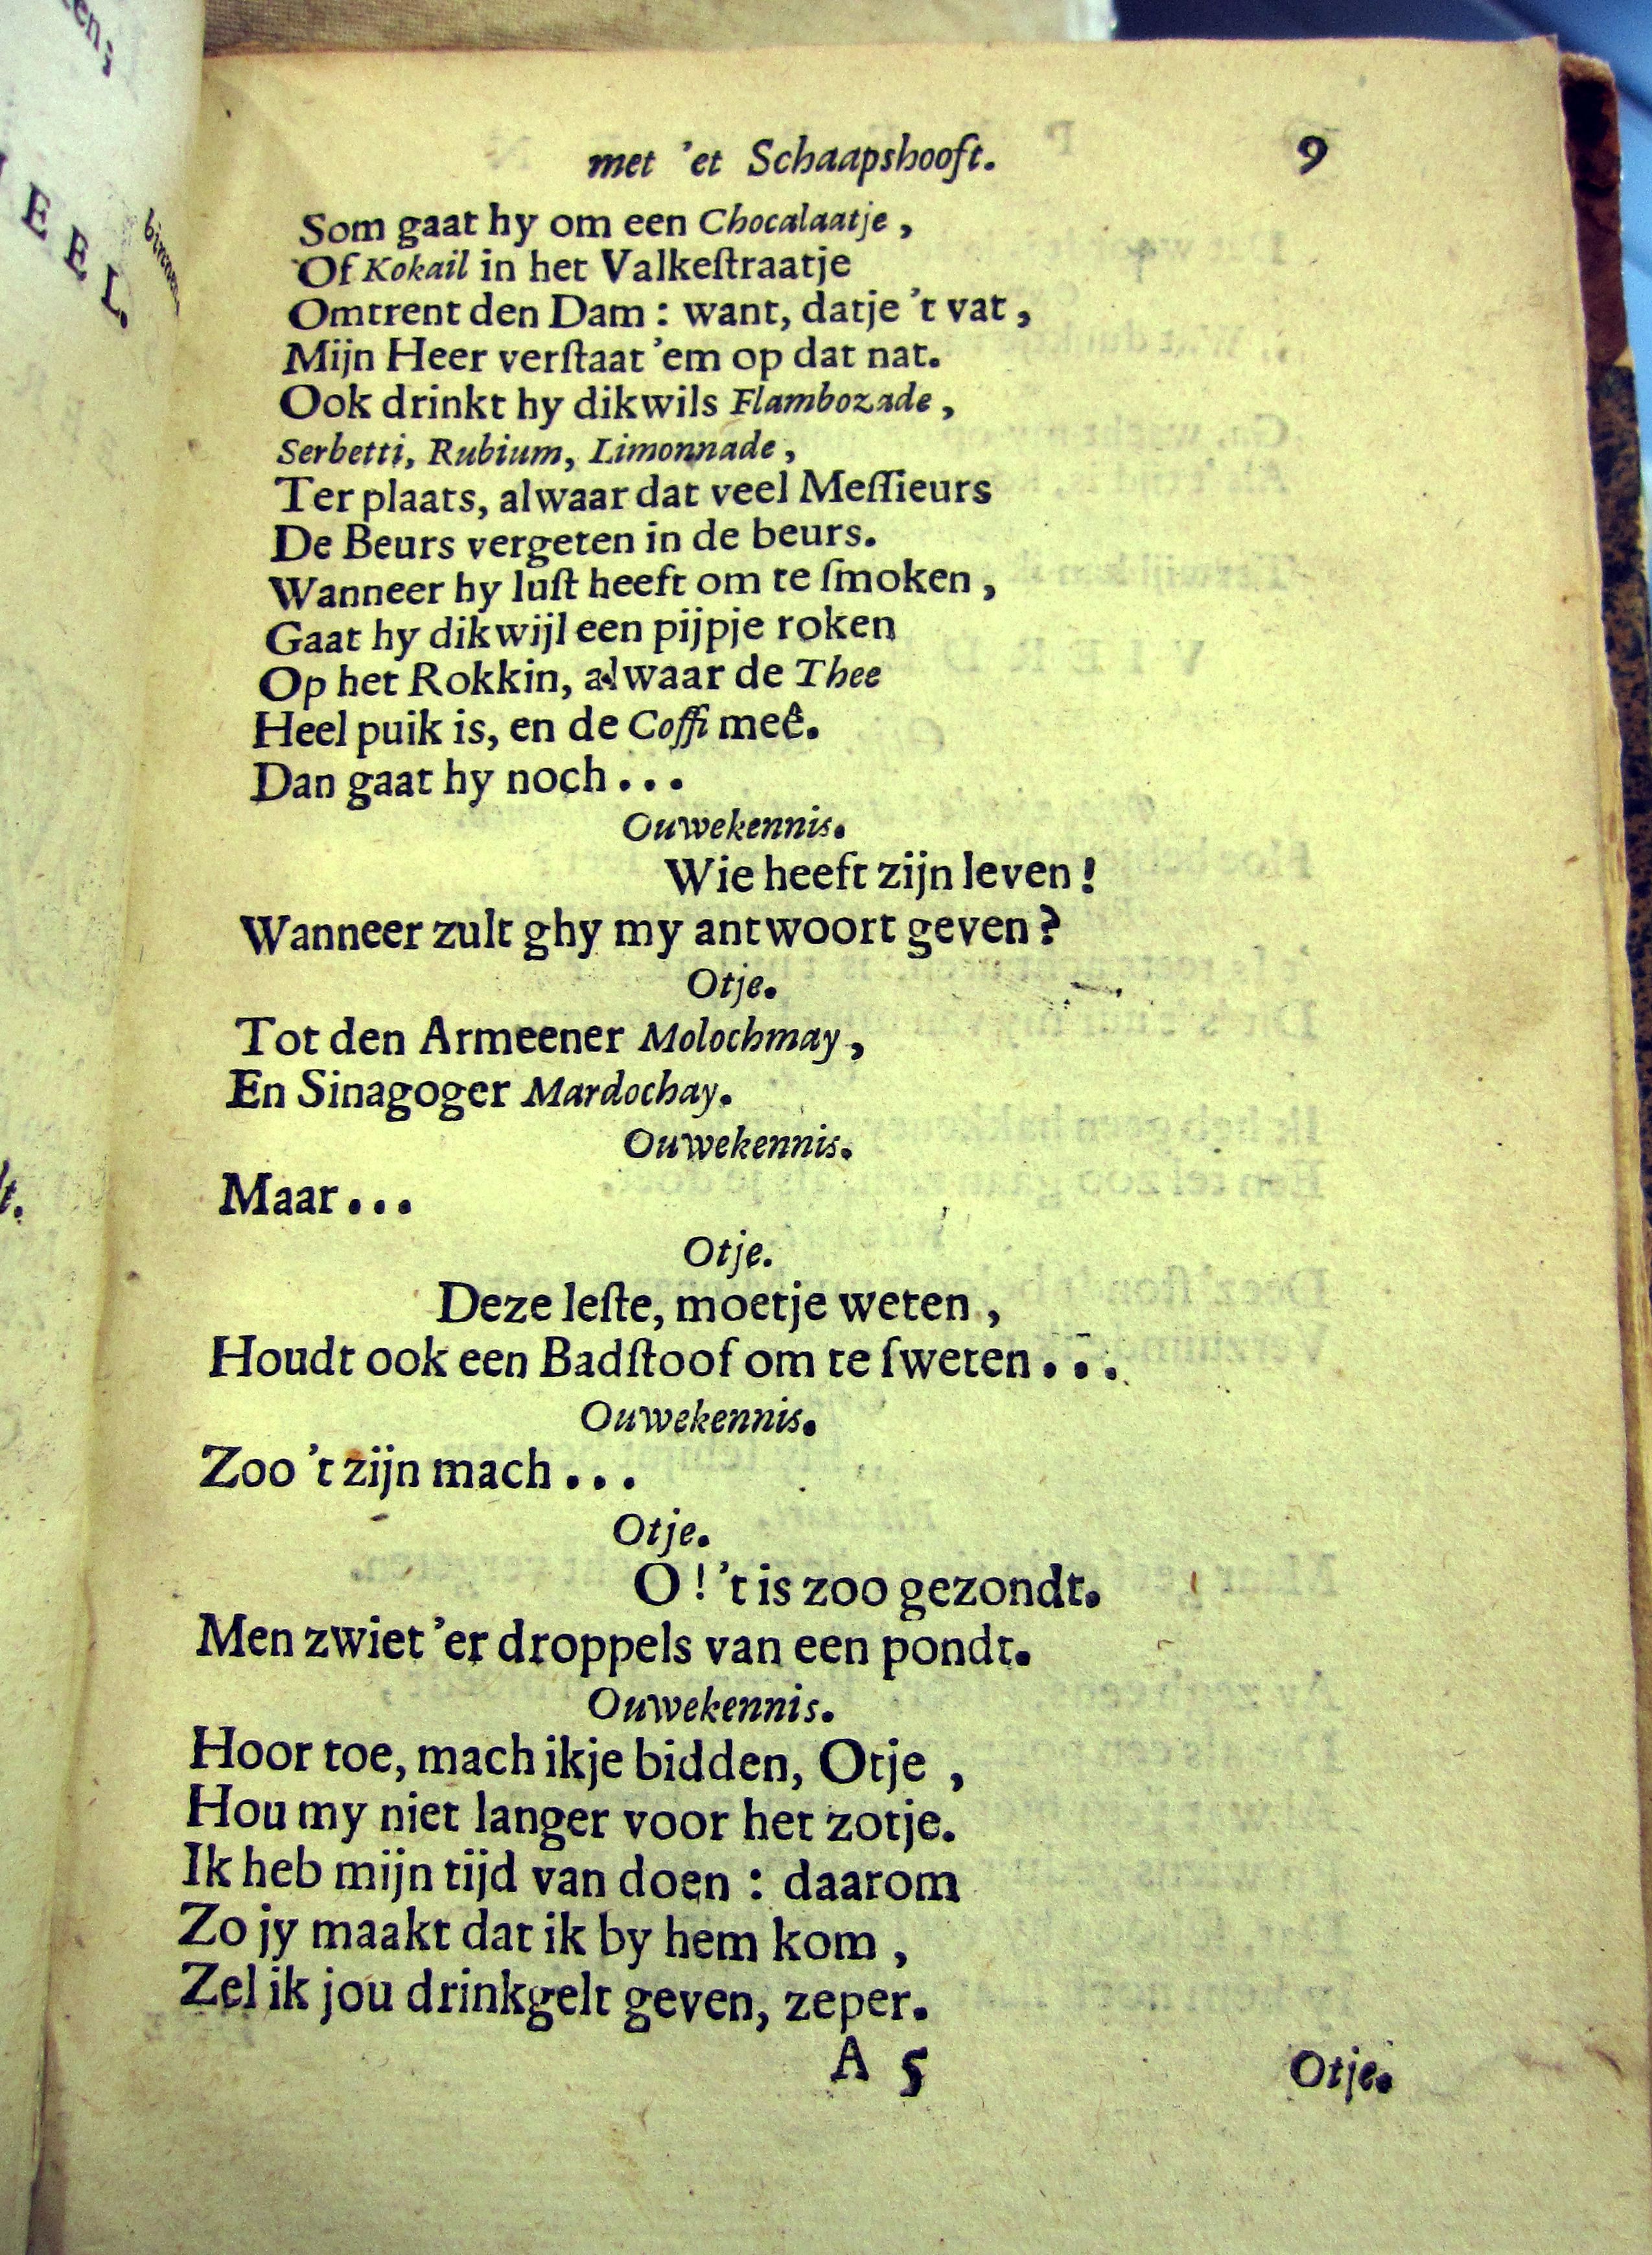 met 'et Schaapshooft. 9
Som gaat hy om een Chocalaatje ,
Of Kokail in het Valkeſtraatje
Omtrent den Dam : want, datje 't vat ,
Mijn Heer verſtaat 'em op dat nat.
Ook drinkt hy dikwils Flambozade ,
Serbetti, Rubium, Limonnade ,
Ter plaats, alwaar dat veel Meſſieurs
De Beurs vergeten in de beurs.
Wanneer hy luſt heeft om te ſmoken ,
Gaat hy dikwijl een pijpje roken
Op het Rokkin, alwaar de Thee
Heel puik is, en de Coffi meê.
Dan gaat hy noch . . .
Ouwekennis.
Wie heeft zijn leven !
Wanneer zult ghy my antwoort geven ?
Otje.
Tot den Armeener Molochmay ,
En Sinagoger Mardochay.
Ouwekennis.
Maar . . .
Otje.
Deze leſte, moetje weten ,
Houdt ook een Badſtoof om te ſweten . . .
Ouwekennis.
Zoo 't zijn mach . . .
Otje.
O ! 't is zoo gezondt.
Men zwiet 'er droppels van een pondt.
Ouwekennis.
Hoor toe, mach ikje bidden, Otje ,
Hou my niet langer voor het zotje.
Ik heb mijn tijd van doen : daarom
Zo jy maakt dat ik by hem kom ,
Zel ik jou drinkgelt geven, zeper.
A 5 Otje.